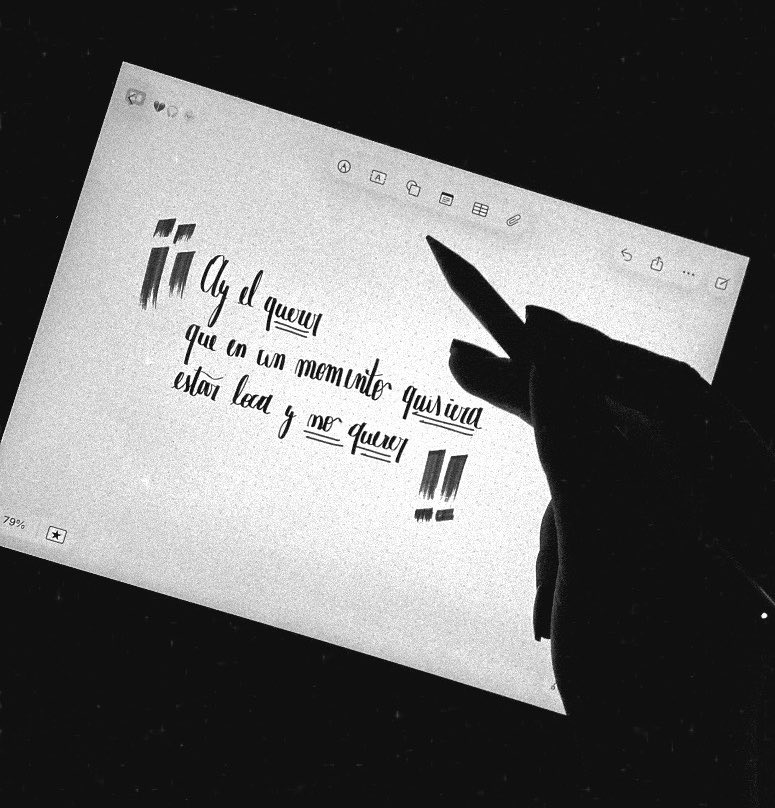 ¡¡ Ay el querer
que en un momento quisiera
estar loca y no querer !!
79%